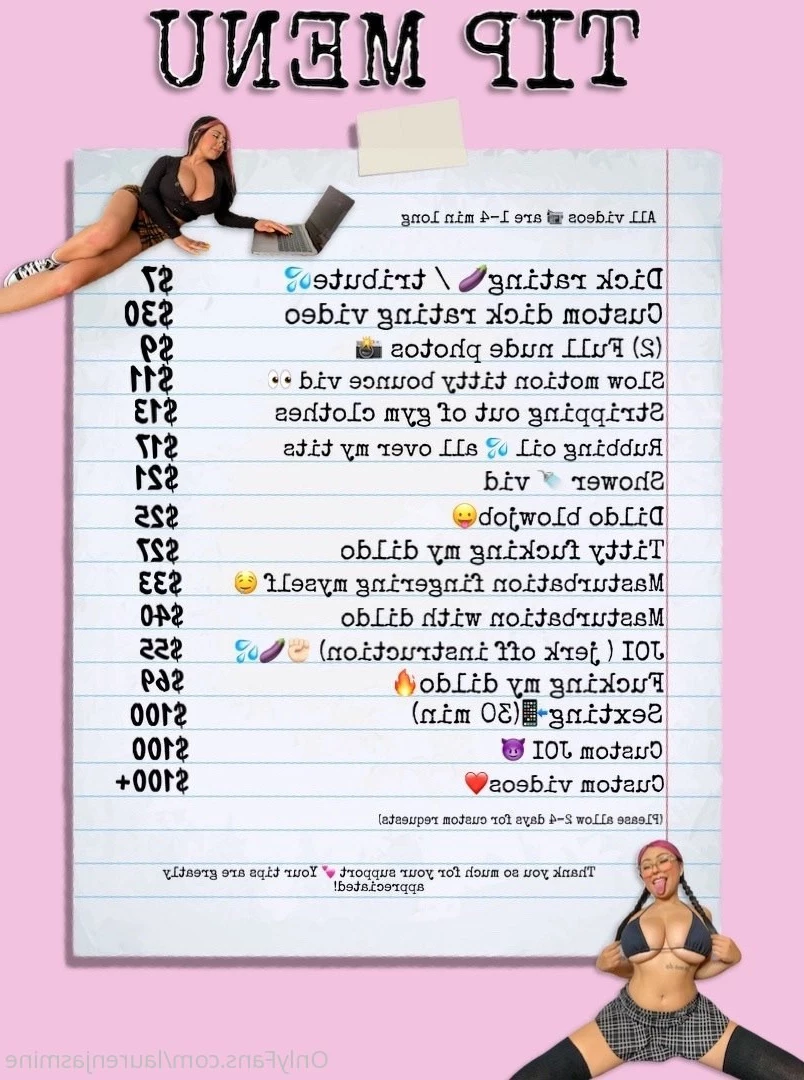 TIP MENU
All videos 📹 are 1-4 min long
Dick rating🍆 / tribute💦 $7
Custom dick rating video $30
(2) Full nude photos 📸 $9
Slow motion titty bounce vid 👀 $11
Stripping out of gym clothes $13
Rubbing oil 💦 all over my tits $17
Shower 🚿 vid $21
Dildo blowjob😛 $25
Titty fucking my dildo $27
Masturbation fingering myself 🤤 $33
Masturbation with dildo $40
JOI ( jerk off instruction) ✊🏻🍆💦 $55
Fucking my dildo🔥 $69
Sexting📲(30 min) $100
Custom JOI 😈 $100
Custom videos❤️ $100+
(Please allow 2-4 days for custom requests)
Thank you so much for your support 💕 Your tips are greatly
appreciated!
OnlyFans.com/laurenjasmine